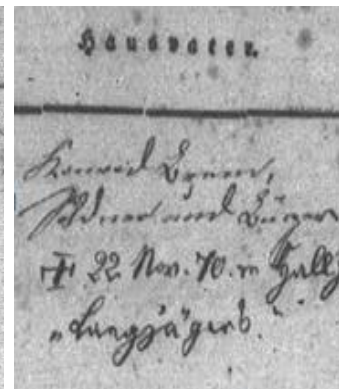 Hausvater.
Konrad
Söldner und Bürger
† 22 Nov. 70. in Hall
„Langjägers."